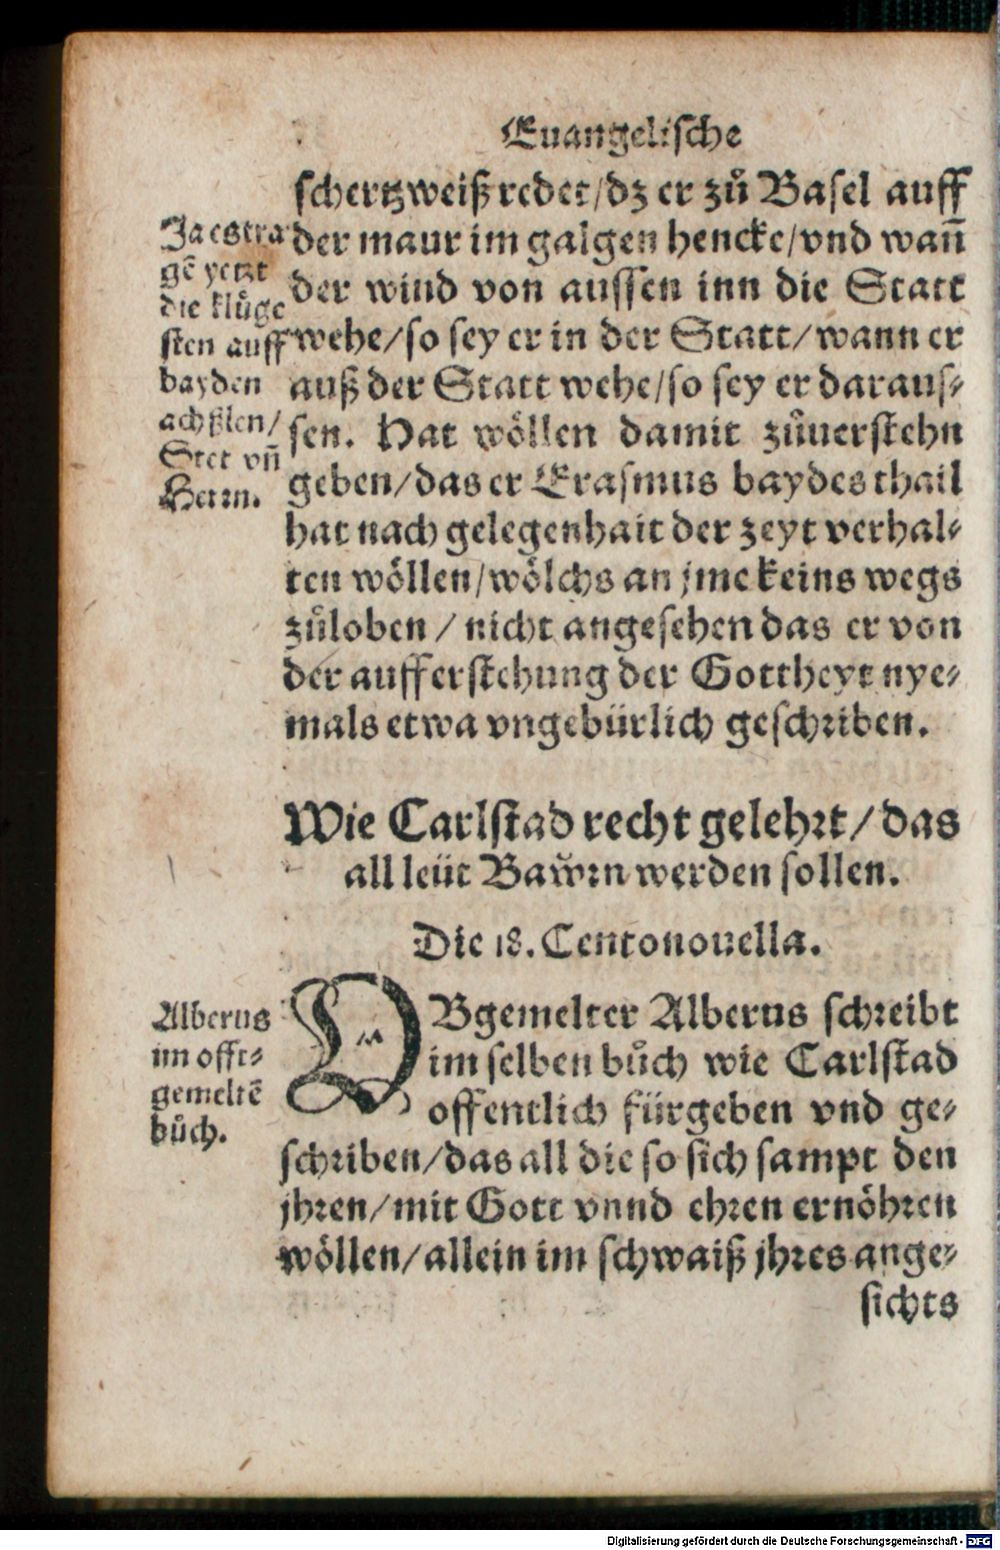 Euangelische
schertzweiß redet/dz er zů Basel auff
der maur im galgen hencke/vnd wañ
der wind von aussen inn die Statt
wehe/so sey er in der Statt/wann er
auß der Statt wehe/so sey er daraus⸗
sen. Hat wöllen damit zůuerstehn
geben/das er Erasmus baydes thail
hat nach gelegenhait der zeyt verhal⸗
ten wöllen/wölchs an jme keins wegs
zůloben/nicht angesehen das er von
der aufferstehung der Gottheyt nye⸗
mals etwa vngebürlich geschriben.
Ja es tra
gẽ yetzt
die klůge
sten auff
bayden
achßlen/
Stet vñ
Herrn.
Wie Carlstad recht gelehrt/das
all leüt Bawrn werden sollen.
Die 18. Centonouella.
OBgemelter Alberus schreibt
im selben bůch wie Carlstad
offentlich fürgeben vnd ge⸗
schriben/das all die so sich sampt den
jhren/mit Gott vnnd ehren ernöhren
wöllen/allein im schwaiß jhres ange⸗
sichts
Alberus
im offt⸗
gemeltẽ
bůch.
Digitalisierung gefördert durch die Deutsche Forschungsgemeinschaft - DFG